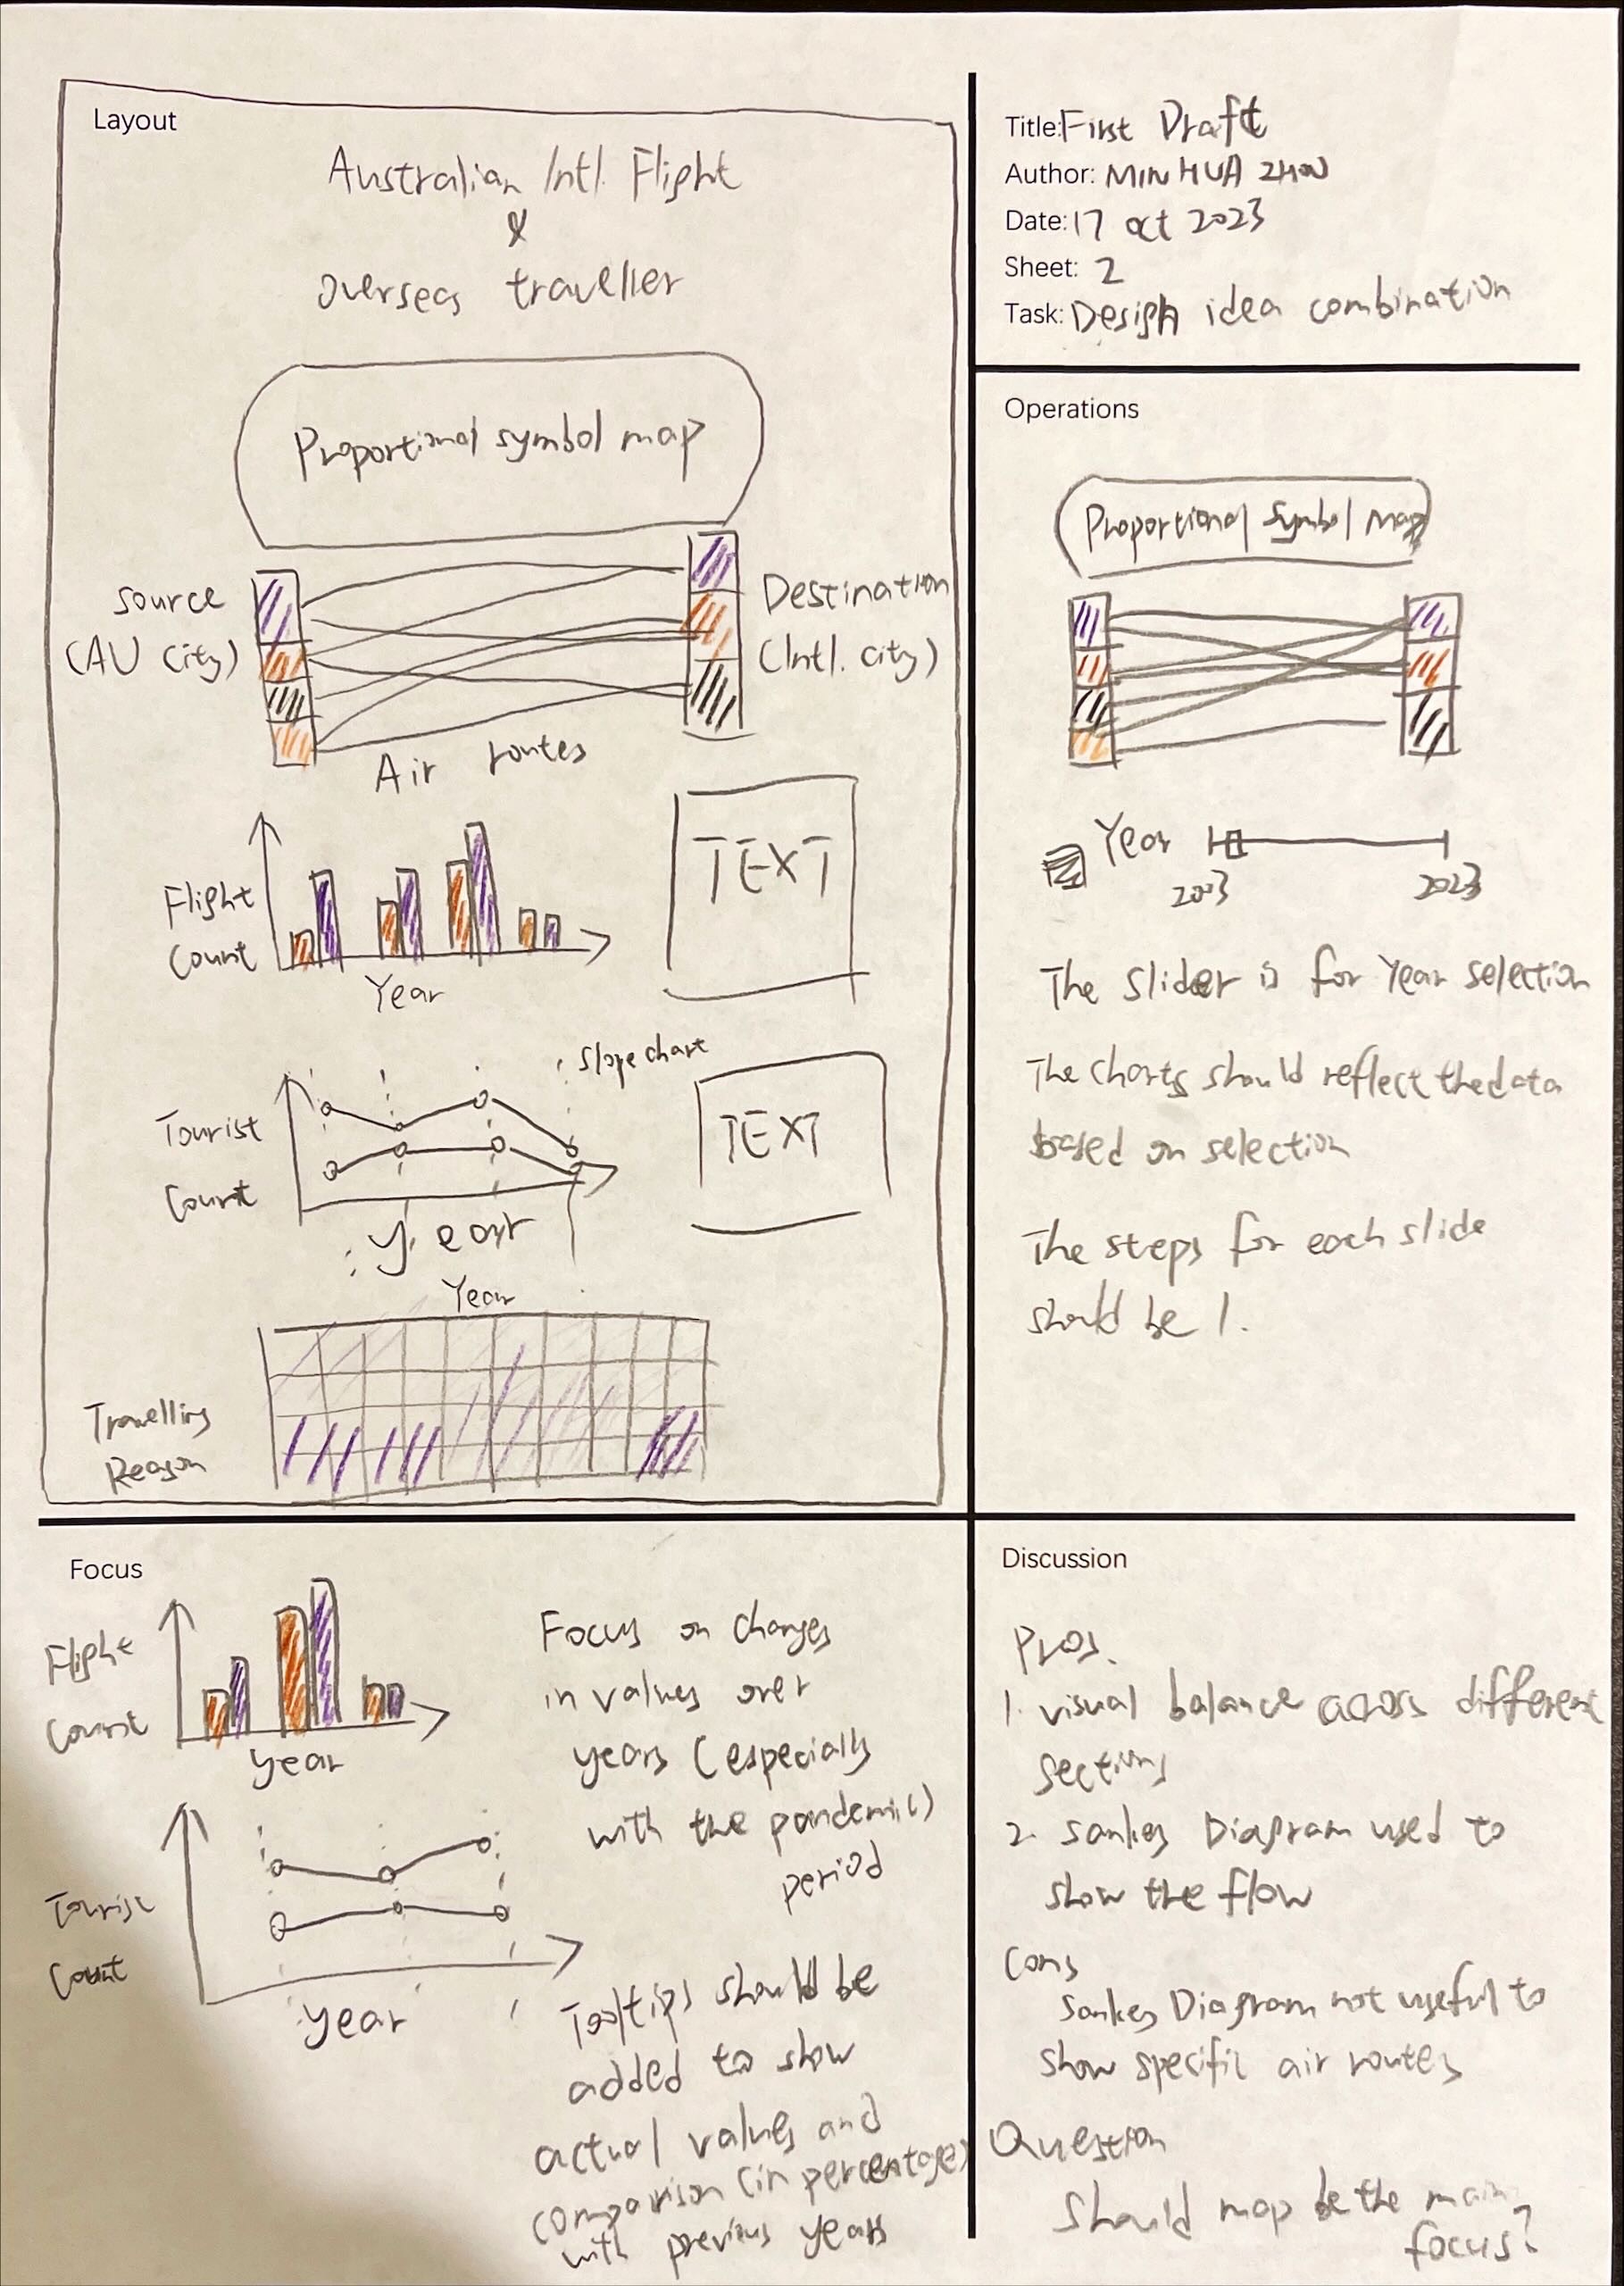 Layout
Australian Intl. Flight
&
overseas traveller
Proportional symbol map
Source
(AU City)
Destination
(Intl. city)
Air routes
Flight
Count
Year
TEXT
slope chart
Tourist
Count
Year
TEXT
Year
Travelling
Reason
Title: First Draft
Author: MINHUA ZHOU
Date: 17 Oct 2023
Sheet: 2
Task: Design idea combination
Operations
Proportional symbol map
Year
2003
2023
The slider is for Year selection
The charts should reflect the data
based on selection
The steps for each slide
should be 1.
Focus
Flight
Count
year
Tourist
Count
year
Focus on changes
in values over
years (especially
with the pandemic)
period
Tooltips should be
added to show
actual values and
comparison (in percentage)
with previous years
Discussion
Pros.
1. visual balance across different
sections
2. Sankey Diagram used to
show the flow
Cons
Sankey Diagram not useful to
show specific air routes
Question
Should map be the main
focus?